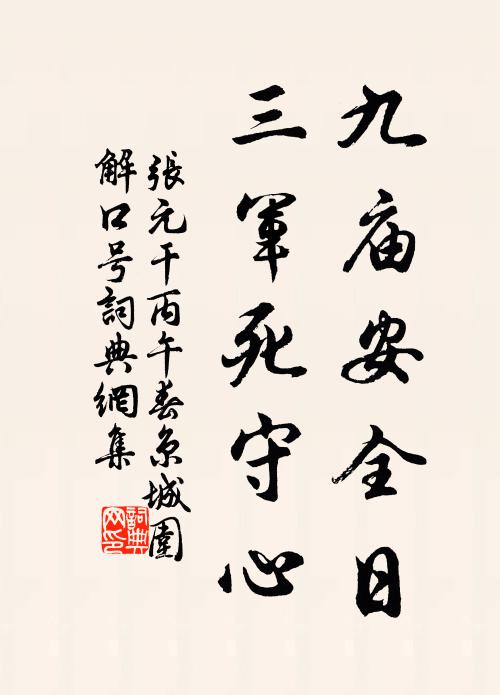 九庙安全日
三军死守心
張元干丙午春京城圍
解口号詞典網集
詞典
网印